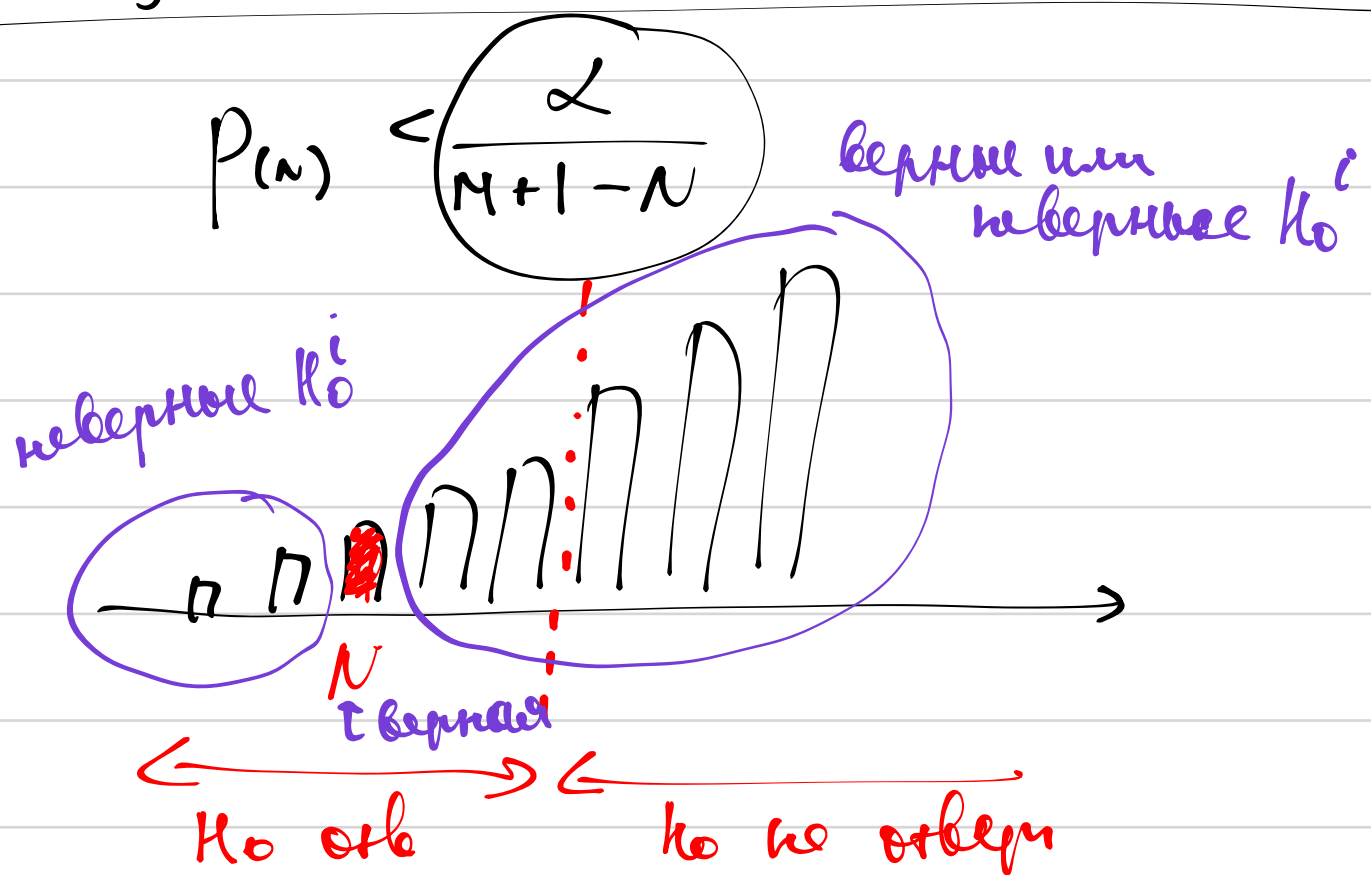 P(N) < α / (M + 1 - N)
верные или
неверные H₀ⁱ
неверные H₀ⁱ
N
↑ верная
H₀ отв
H₀ не отверг